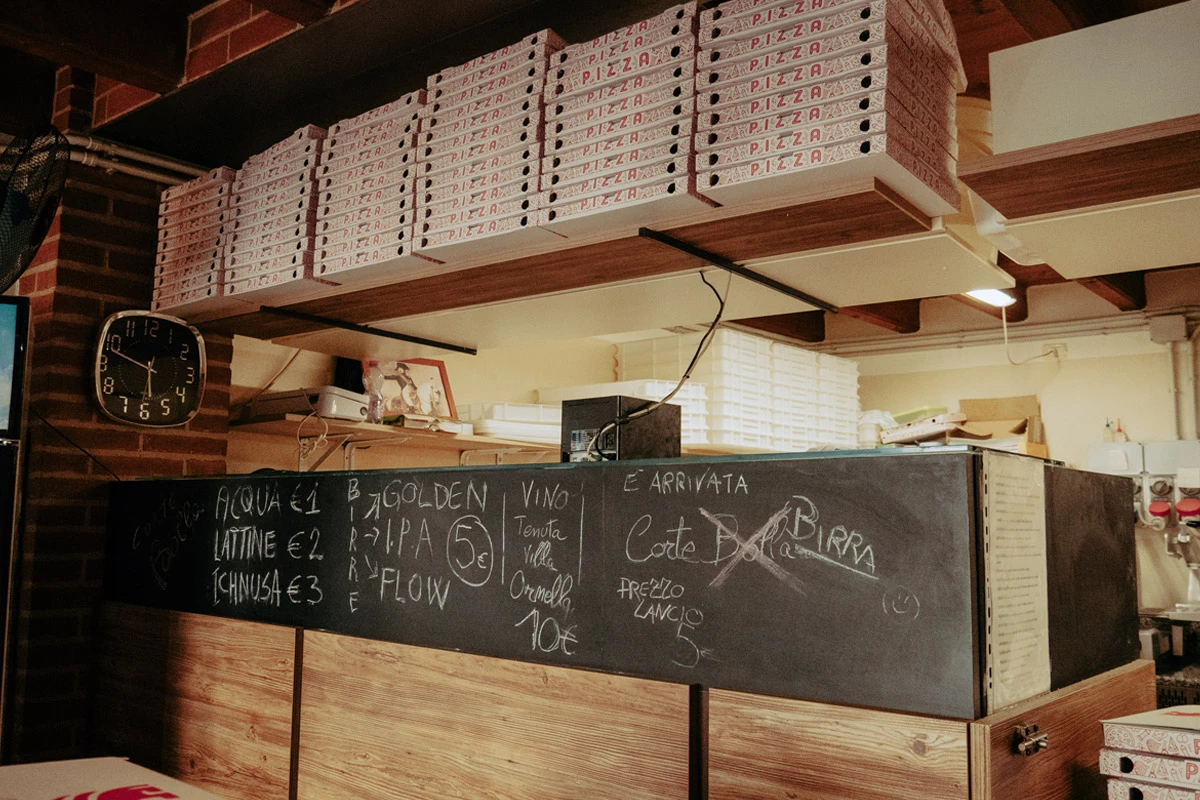 PIZZA
10 11 12 1 2 3 4 5 6 7 8 9
ACQUA €1
LATTINE €2
ICHNUSA €3
BIRRE
GOLDEN
I.P.A
FLOW
5€
VINO
Tenuta
Villa
Ormella
10€
E ARRIVATA
Corte Bolla BIRRA
PREZZO
LANCIO
5€